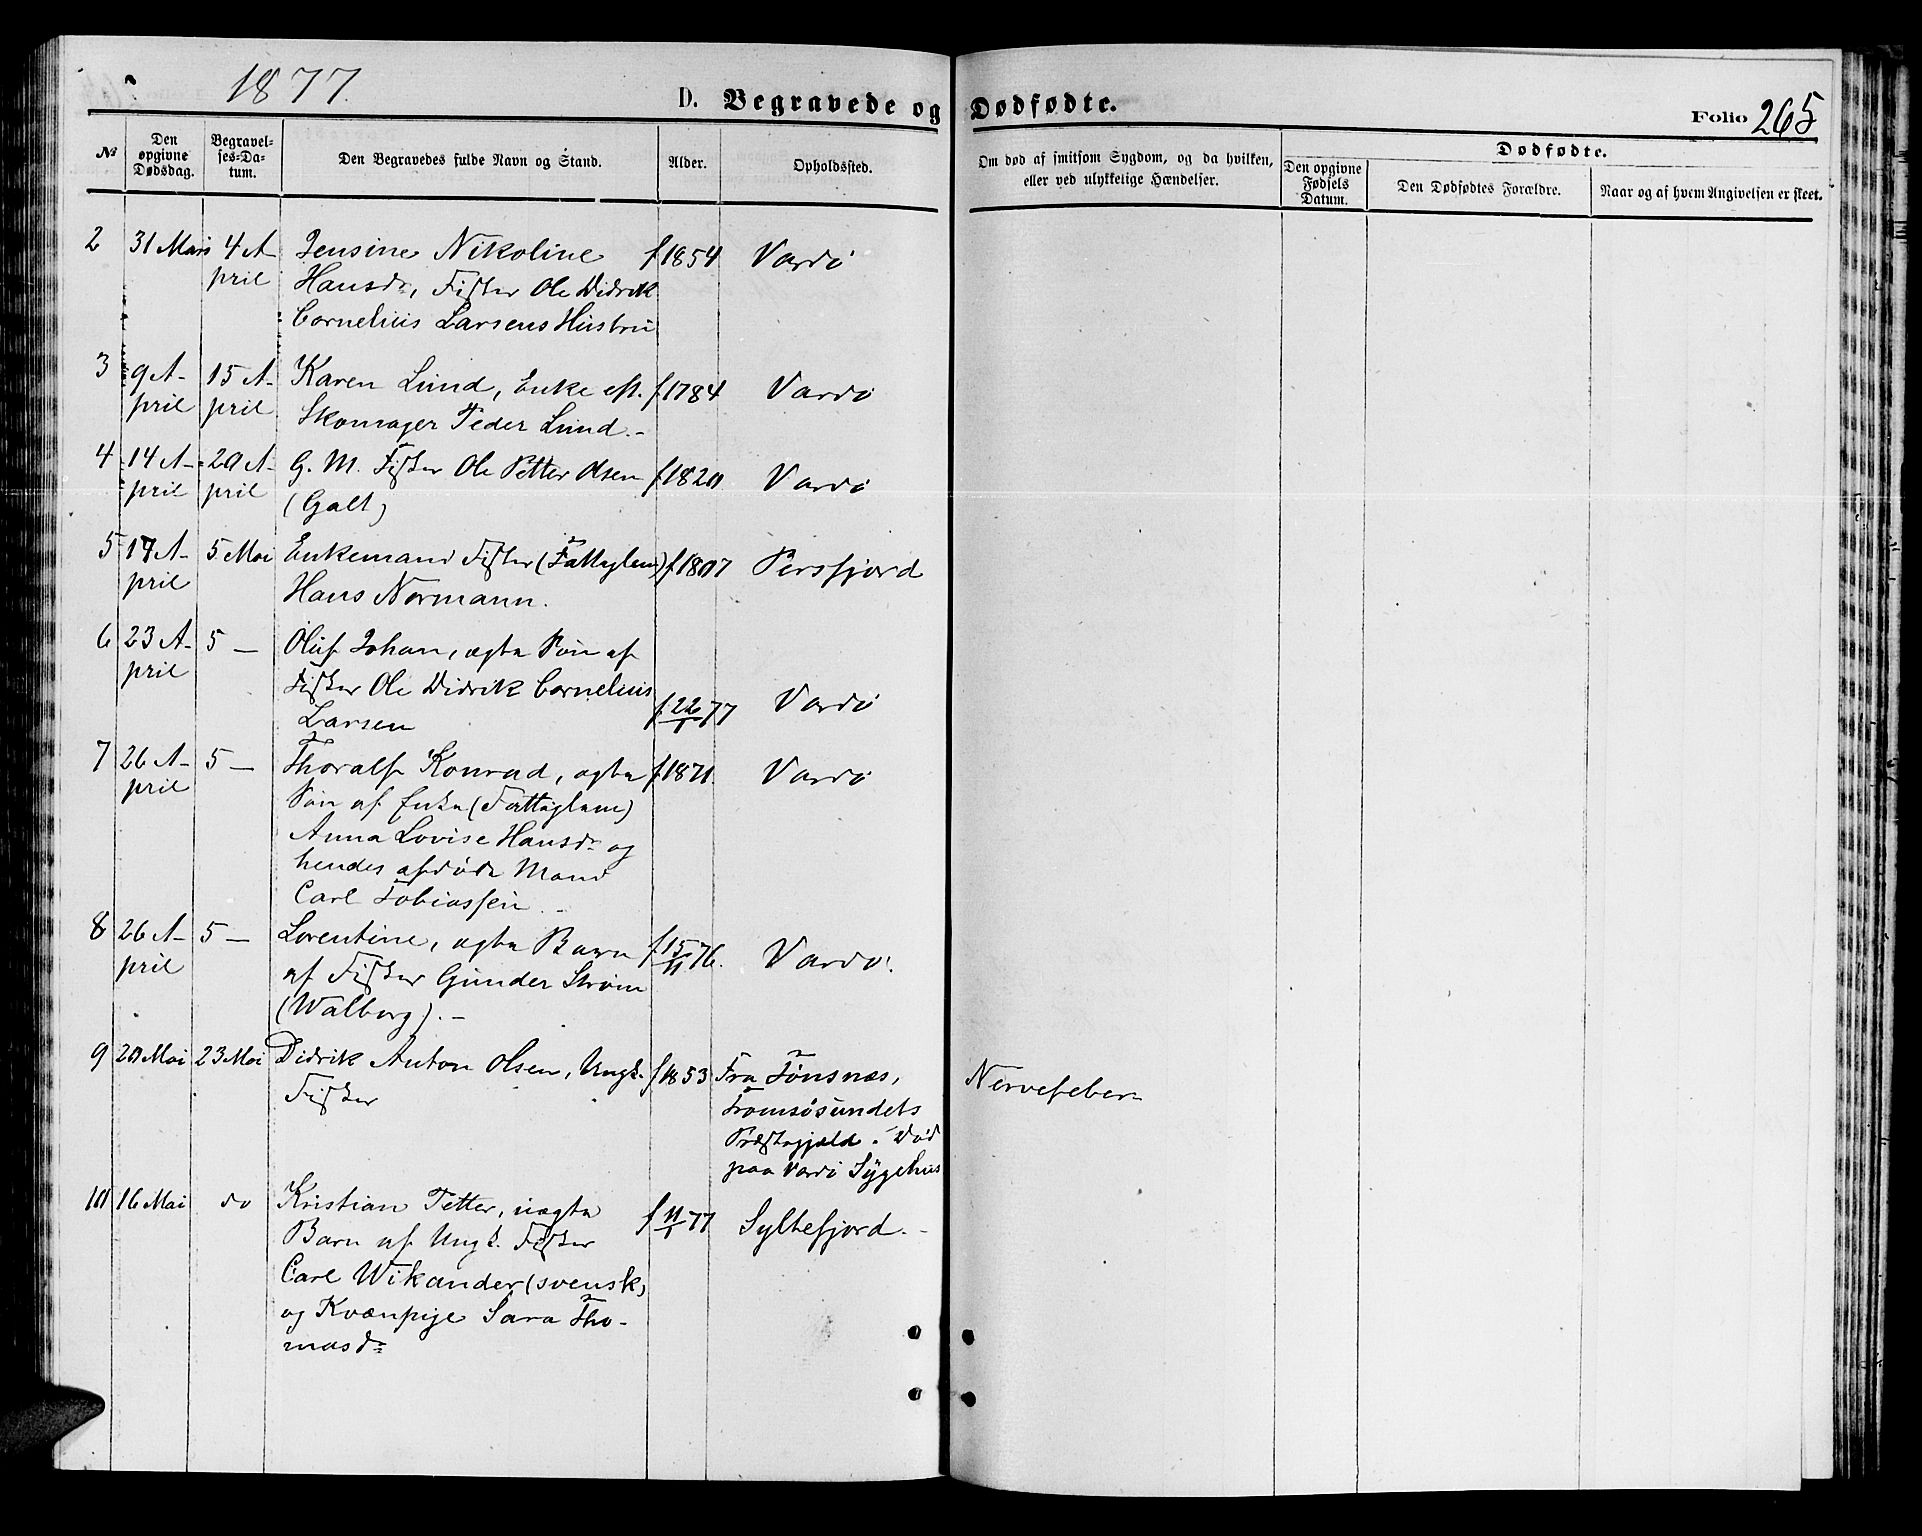 1877.
D. Begravede og Dødfødte.
Folio 265
№
Den opgivne Dødsdag.
Begravelses-Datum.
Den Begravedes fulde Navn og Stand.
Alder.
Opholdssted.
Om død af smitsom Sygdom, og da hvilken, eller ved ulykkelige Hændelser.
Dødfødte.
Den opgivne Fødsels Datum.
Den Dødfødtes Forældre.
Naar og af hvem Angivelsen er skeet.
2 31 Mars 4 A- Jensine Nikoline f 1854 Vardö
pril Hansdr, Fisker Ole Didrik
Cornelius Larsens Hustru
3 9 A- 15 A- Karen Lund, Enke eft. f 1784 Vardö
pril pril Skomager Peder Lund.-
4 14 A- 20 A- G. M. Fisker Ole Petter Olsen f 1820 Vardö
pril pril (Galt)
5 17 A- 5 Mai Enkemand Fisker (Fattiglem) f 1807 Persfjord
pril Hans Normann.
6 23 A- 5 — Oluf Johan, ægte Sön af
pril Fisker Ole Didrik Cornelius
Larsen f 22/1 77 Vardö
7 26 A- 5 — Thoralf Konrad, ægte f 1871. Vardö
pril Sön af Enke (Fattiglem)
Anna Lovise Hansdr og
hendes afdöde Mand
Carl Tobiassen. -
8 26 A- 5 — Lorentine, ægte Barn f 15/11 76. Vardö.
pril af Fisker Gunder Ström
(Walborg). -
9 20 Mai 23 Mai Didrik Anton Olsen, Ungk. f 1853 Fra Tönsnæs, Nervefeber
Fisker Tromsösundets
Præstegjæld. Död
paa Vardö Sygehus
10 16 Mai do Kristian Petter, uægte f 11/1 77 Syltefjord. -
Barn af Ungk. Fisker
Carl Wikander (svensk)
og Kvænpige Sara Tho-
masdr